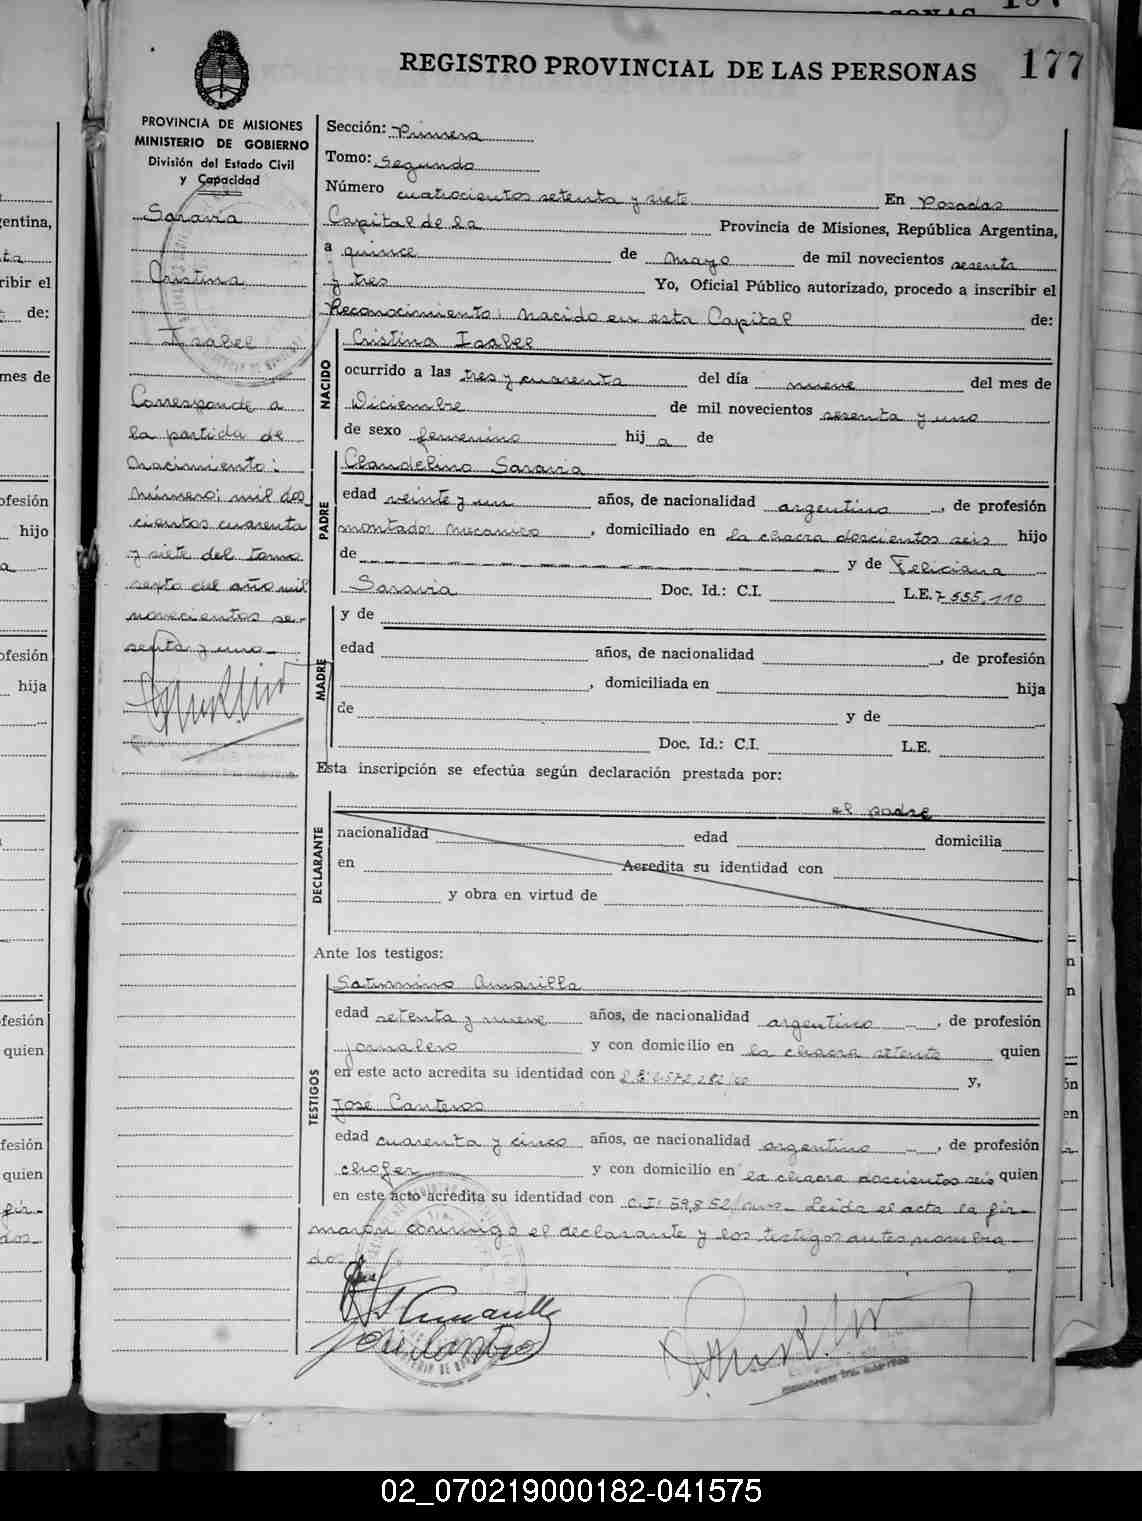 REGISTRO PROVINCIAL DE LAS PERSONAS 177
PROVINCIA DE MISIONES
MINISTERIO DE GOBIERNO
División del Estado Civil
y Capacidad
Saravia
Cristina
Isabel
Corresponde a
la partida de
nacimiento:
número: mil dos
cientos cuarenta
y siete del tomo
sexto del año mil
novecientos se-
senta y uno
Sección: Primera
Tomo: Segundo
Número cuatrocientos setenta y siete En Posadas
Capital de la Provincia de Misiones, República Argentina,
a quince de Mayo de mil novecientos sesenta
y tres Yo, Oficial Público autorizado, procedo a inscribir el
Reconocimiento: nacido en esta Capital de:
NACIDO
Cristina Isabel
ocurrido a las tres y cuarenta del día nueve del mes de
Diciembre de mil novecientos sesenta y uno
de sexo femenino hij a de
PADRE
Claudelino Saravia
edad veinte y un años, de nacionalidad argentino, de profesión
montador mecanico, domiciliado en la chacra doscientos seis hijo
de y de Feliciana
Saravia Doc. Id.: C.I. L.E. 7.555.110
MADRE
y de
edad años, de nacionalidad , de profesión
, domiciliada en hija
de y de
Doc. Id.: C.I. L.E.
Esta inscripción se efectúa según declaración prestada por:
DECLARANTE
el padre
nacionalidad edad domicilia
en Acredita su identidad con
y obra en virtud de
Ante los testigos:
TESTIGOS
Saturnino Amarilla
edad setenta y nueve años, de nacionalidad argentino, de profesión
jornalero y con domicilio en la chacra setenta quien
en este acto acredita su identidad con y,
José Canteros
edad cuarenta y cinco años, de nacionalidad argentino, de profesión
chofer y con domicilio en la chacra doscientos seis quien
en este acto acredita su identidad con C.I: 59,852 Leída el acta la fir-
maron conmigo el declarante y los testigos antes nombra
dos
02_070219000182-041575